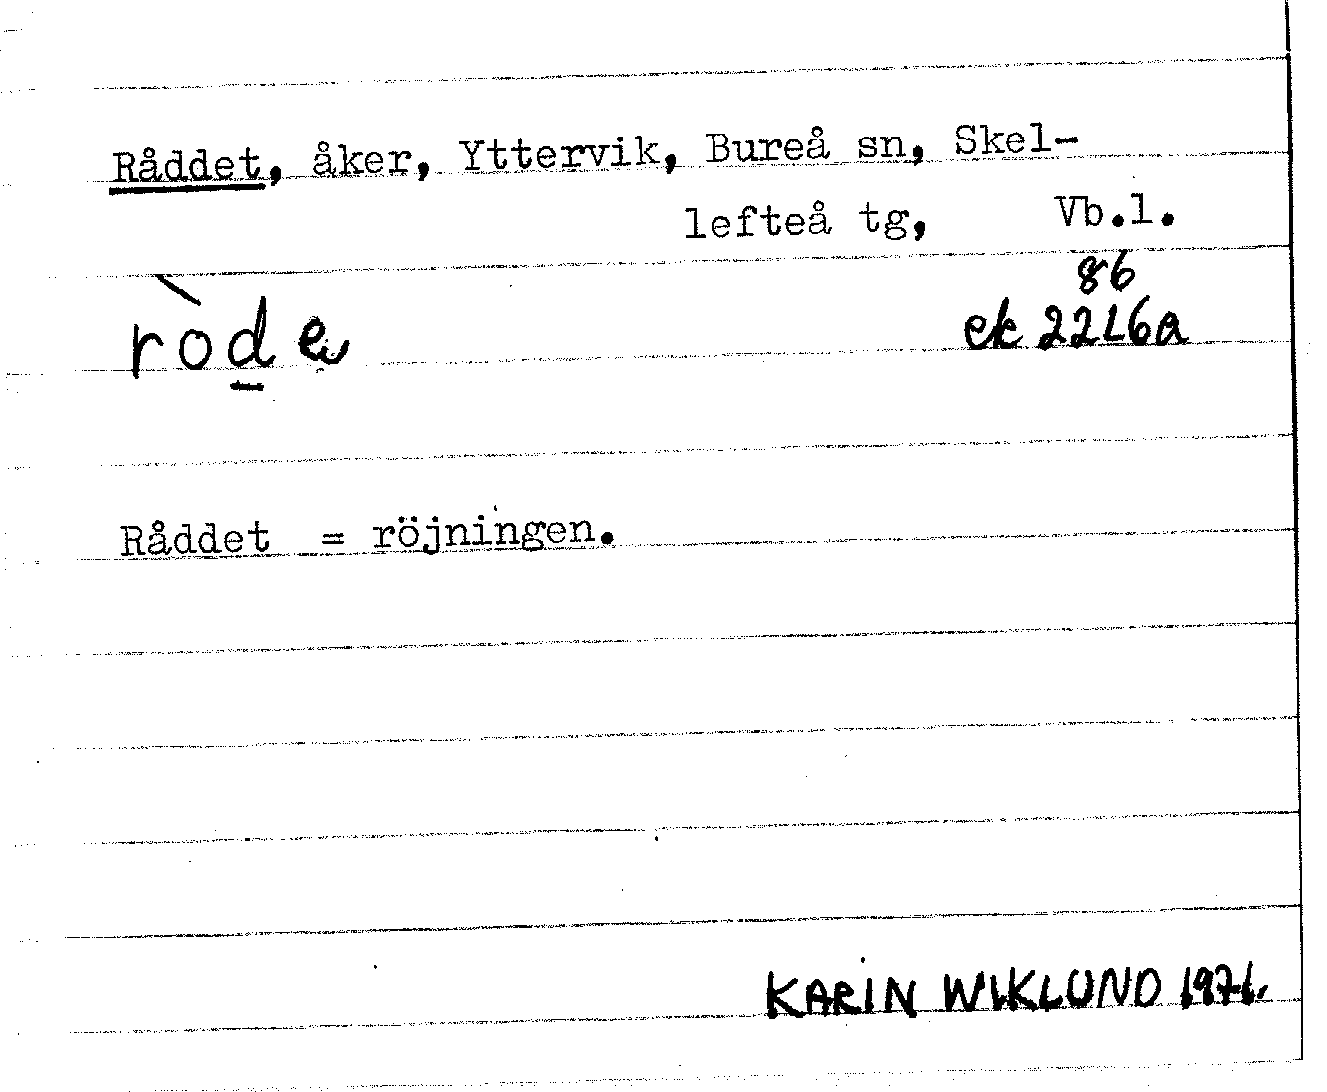 Råddet, åker, Yttervik, Bureå sn, Skel-
lefteå tg, Vb.l.
86
ek 2216a
Råddet = röjningen.
KARIN WIKLUND 1971.